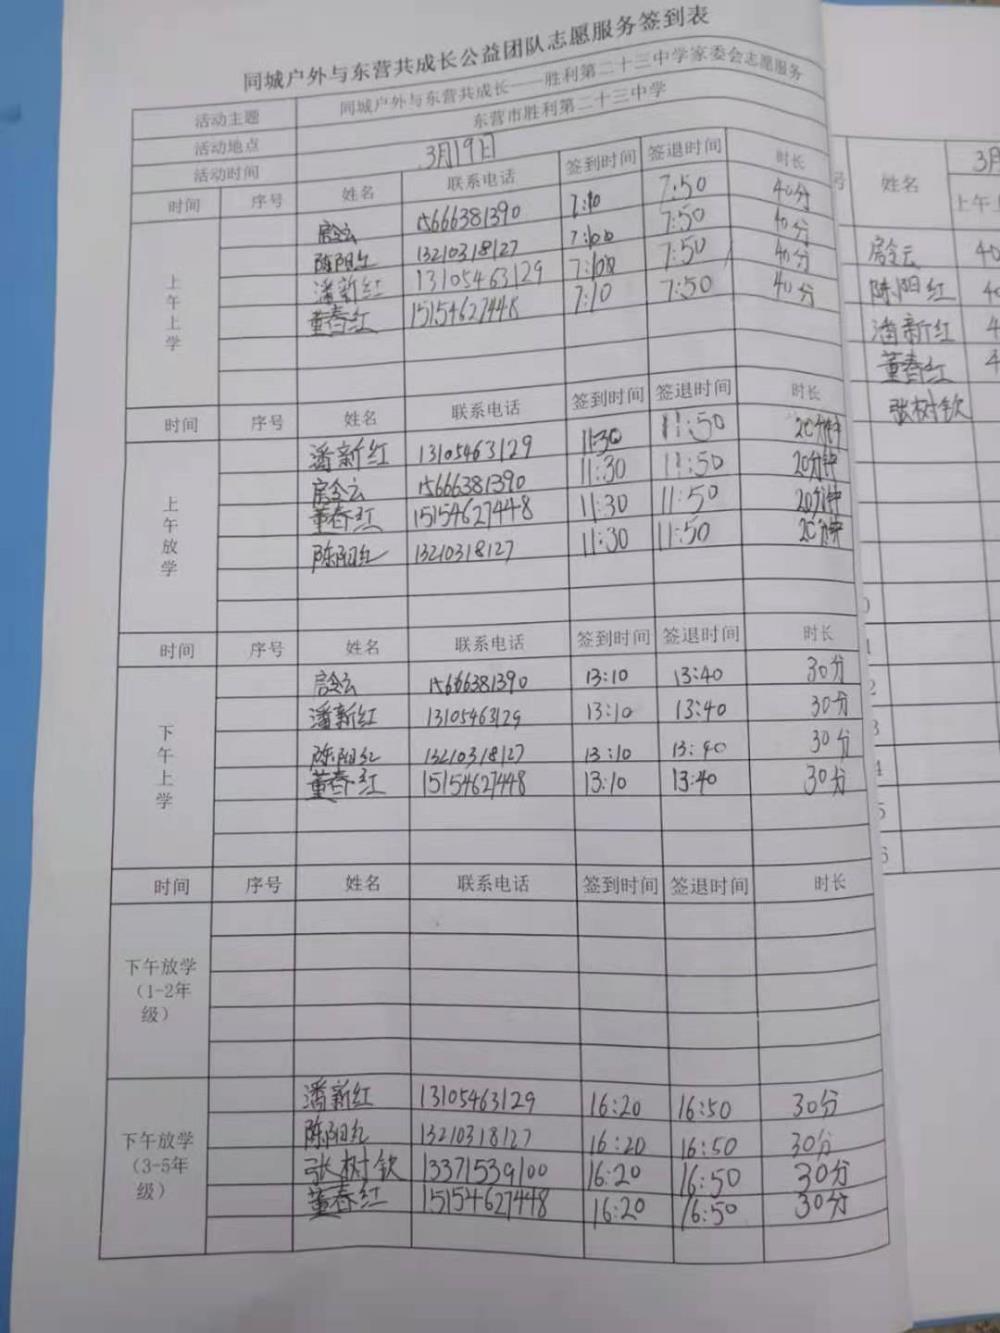 同城户外与东营共成长公益团队志愿服务签到表
活动主题 同城户外与东营共成长——胜利第二十三中学家委会志愿服务
活动地点 东营市胜利第二十三中学
活动时间 3月19日
时间 序号 姓名 联系电话 签到时间 签退时间 时长
上午上学
房令云 15666381390 7:10 7:50 40分
陈阳红 13210318127 7:50 40分
潘新红 13105463129 7:50 40分
董春红 15154627448 7:10 7:50 40分
时间 序号 姓名 联系电话 签到时间 签退时间 时长
上午放学
潘新红 13105463129 11:30 11:50 20分钟
房令云 15666381390 11:30 11:50 20分钟
董春红 15154627448 11:30 11:50 20分钟
陈阳红 13210318127 11:30 11:50 20分钟
时间 序号 姓名 联系电话 签到时间 签退时间 时长
下午上学
房令云 15666381390 13:10 13:40 30分
潘新红 13105463129 13:10 13:40 30分
陈阳红 13210318127 13:10 13:40 30分
董春红 15154627448 13:10 13:40 30分
时间 序号 姓名 联系电话 签到时间 签退时间 时长
下午放学
（1-2年
级）
下午放学
（3-5年
级）
潘新红 13105463129 16:20 16:50 30分
陈阳红 13210318127 16:20 16:50 30分
张树钦 13371539100 16:20 16:50 30分
董春红 15154627448 16:20 16:50 30分
号 姓名 3月
上午上
房令云 40
陈阳红
潘新红
董春红
张树钦